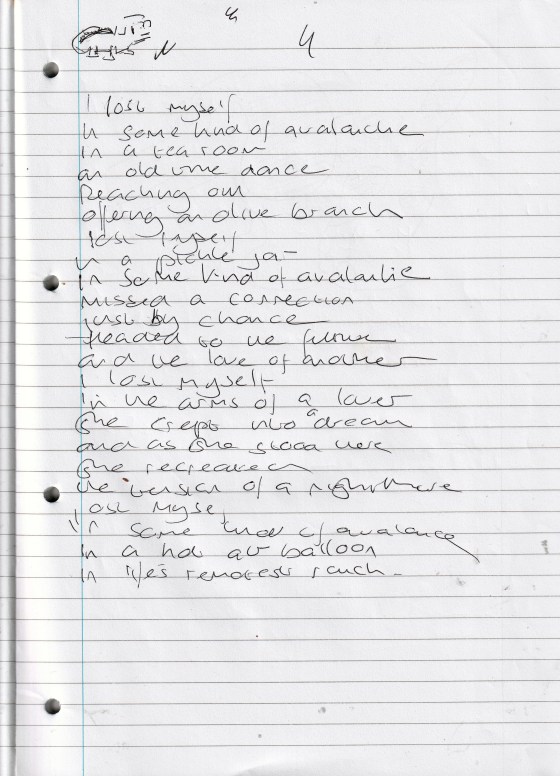 4
I lost myself
In some kind of avalanche
In a tea room
an old time dance
Reaching out
offering an olive branch
lost myself
in a pickle jar
In some kind of avalanche
missed a connection
just by chance
Headed to the future
and the love of another
I lost myself
In the arms of a lover
She crept into a dream
and as she stood there
She recreated
the version of a nightmare
lost myself
In some kind of avalance
In a hot air balloon
In life's remotest ranch